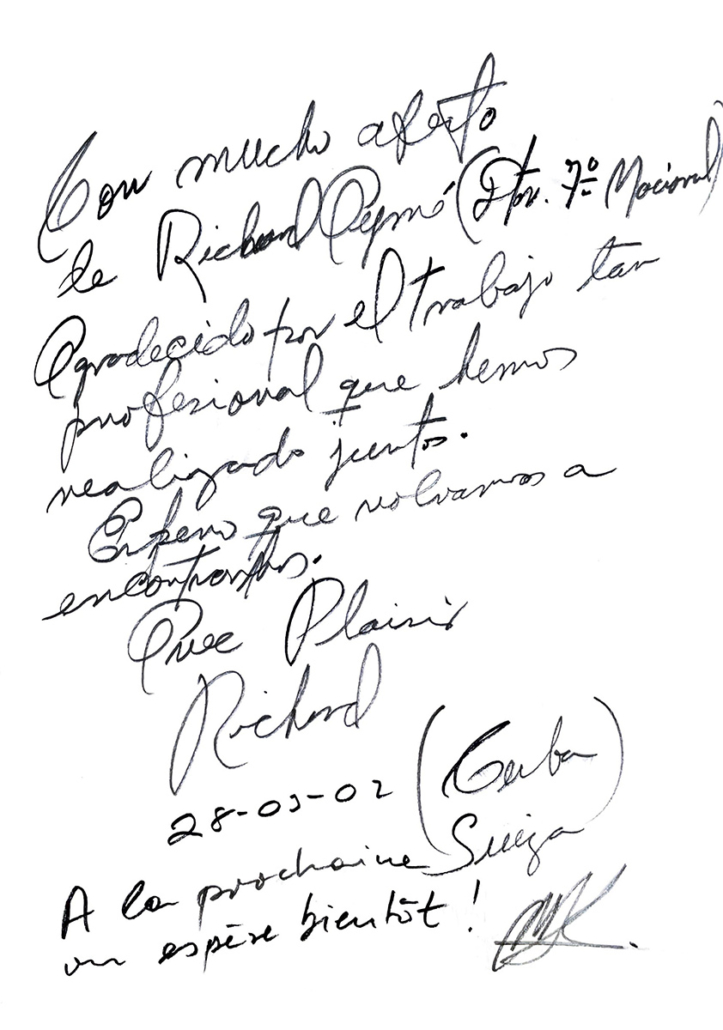 Con mucho afecto
de Richard Egües (Dtor. 7º Nacional)
Agradecido por el trabajo tan
profesional que hemos
realizado juntos.
Espero que volvamos a
encontrarnos.
Avec Plaisir
Richard
28-03-02 (Cuba)
Suiza
A la prochaine
on espère bientôt!